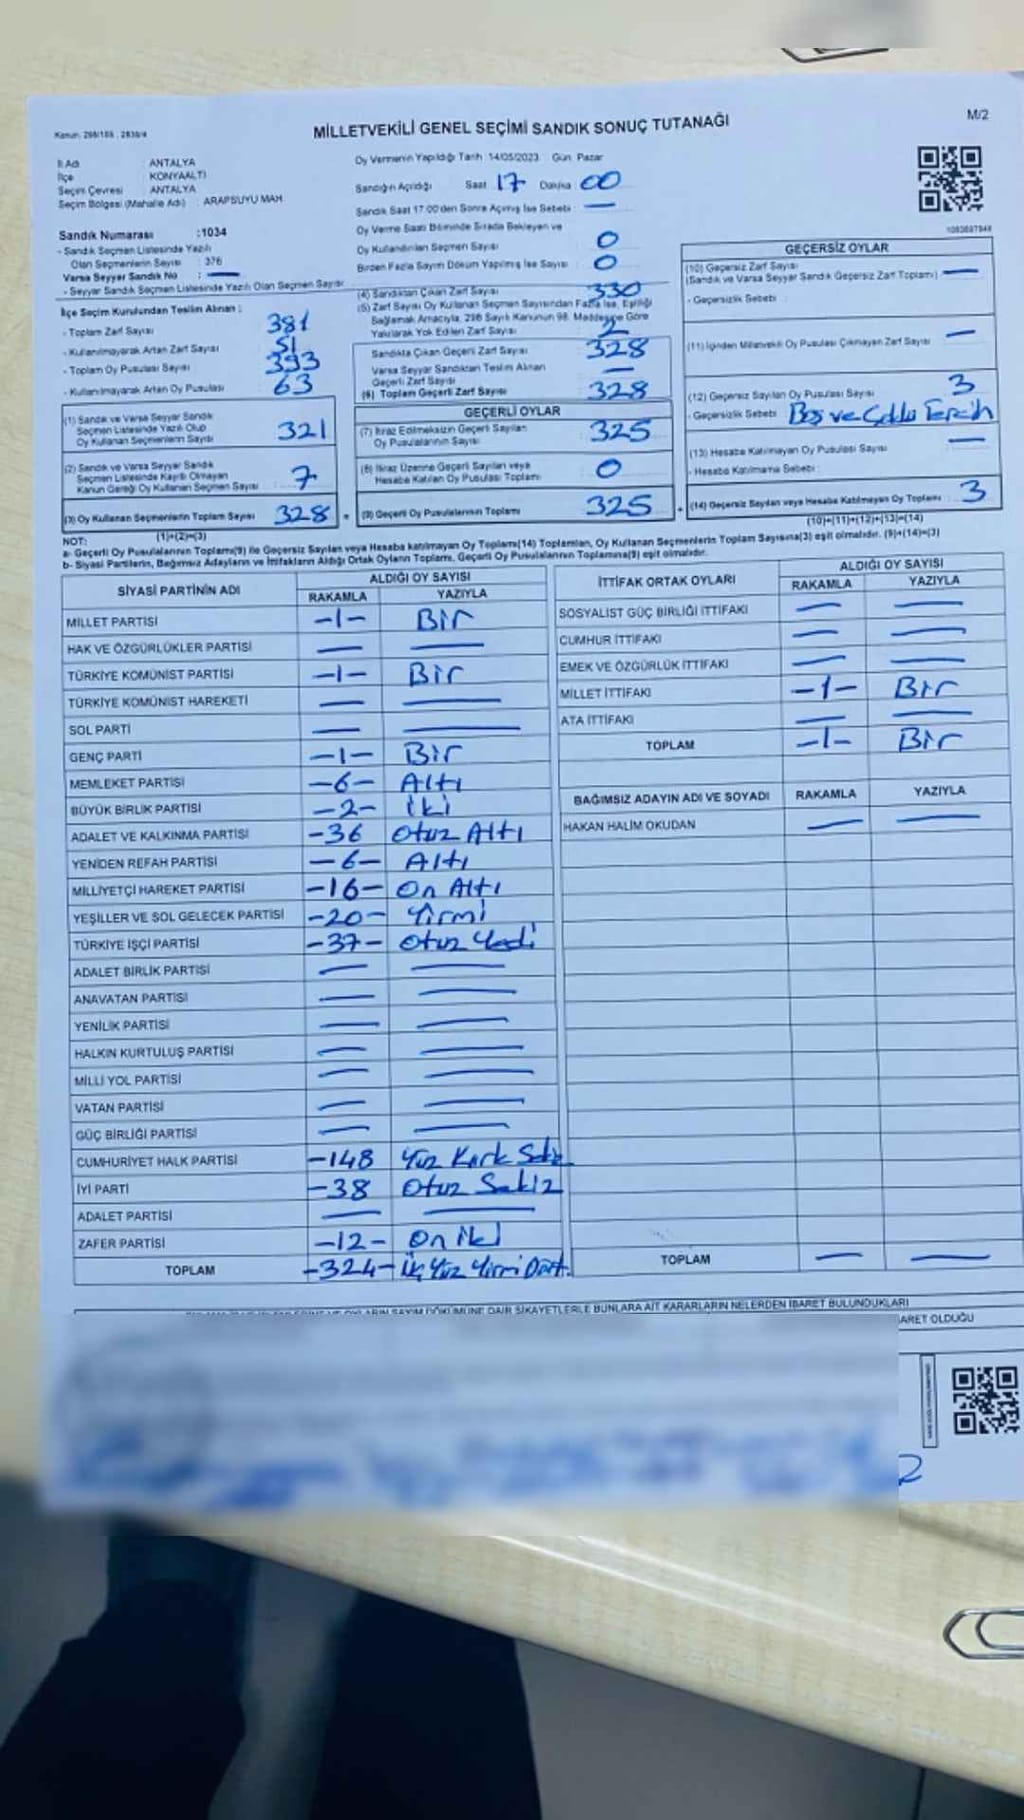 Kanun: 298/105, 2839/4
M/2
MİLLETVEKİLİ GENEL SEÇİMİ SANDIK SONUÇ TUTANAĞI
İl Adı ANTALYA
İlçe KONYAALTI
Seçim Çevresi ANTALYA
Seçim Bölgesi (Mahalle Adı) : ARAPSUYU MAH
Sandık Numarası :1034
- Sandık Seçmen Listesinde Yazılı
Olan Seçmenlerin Sayısı : 376
Varsa Seyyar Sandık No : —
- Seyyar Sandık Seçmen Listesinde Yazılı Olan Seçmen Sayısı
Oy Vermenin Yapıldığı Tarih 14/05/2023 Gün Pazar
Sandığın Açıldığı Saat 17 Dakika 00
Sandık Saat 17:00'den Sonra Açılmış İse Sebebi : —
Oy Verme Saati Bitiminde Sırada Bekleyen ve
Oy Kullandırılan Seçmen Sayısı 0
Birden Fazla Sayım Döküm Yapılmış İse Sayısı : 0
İlçe Seçim Kurulundan Teslim Alınan :
- Toplam Zarf Sayısı 381
- Kullanılmayarak Artan Zarf Sayısı 51
- Toplam Oy Pusulası Sayısı 393
- Kullanılmayarak Artan Oy Pusulası 63
(1) Sandık ve Varsa Seyyar Sandık
Seçmen Listesinde Yazılı Olup
Oy Kullanan Seçmenlerin Sayısı 321
(2) Sandık ve Varsa Seyyar Sandık
Seçmen Listesinde Kayıtlı Olmayan
Kanun Gereği Oy Kullanan Seçmen Sayısı 7
(3) Oy Kullanan Seçmenlerin Toplam Sayısı 328 =
(1)+(2)=(3)
(4) Sandıktan Çıkan Zarf Sayısı 330
(5) Zarf Sayısı Oy Kullanan Seçmen Sayısından Fazla İse, Eşitliği
Sağlamak Amacıyla, 298 Sayılı Kanunun 98. Maddesine Göre
Yakılarak Yok Edilen Zarf Sayısı 2
Sandıkta Çıkan Geçerli Zarf Sayısı 328
Varsa Seyyar Sandıktan Teslim Alınan
Geçerli Zarf Sayısı —
(6) Toplam Geçerli Zarf Sayısı 328
GEÇERLİ OYLAR
(7) İtiraz Edilmeksizin Geçerli Sayılan
Oy Pusulalarının Sayısı 325
(8) İtiraz Üzerine Geçerli Sayılan veya
Hesaba Katılan Oy Pusulası Toplamı 0
(9) Geçerli Oy Pusulalarının Toplamı 325 +
GEÇERSİZ OYLAR
(10) Geçersiz Zarf Sayısı
(Sandık ve Varsa Seyyar Sandık Geçersiz Zarf Toplamı) —
- Geçersizlik Sebebi :
(11) İçinden Milletvekili Oy Pusulası Çıkmayan Zarf Sayısı —
(12) Geçersiz Sayılan Oy Pusulası Sayısı 3
- Geçersizlik Sebebi Boş ve Çoklu Tercih
(13) Hesaba Katılmayan Oy Pusulası Sayısı —
- Hesaba Katılmama Sebebi :
(14) Geçersiz Sayılan veya Hesaba Katılmayan Oy Toplamı 3
(10)+(11)+(12)+(13)=(14)
NOT:
a- Geçerli Oy Pusulalarının Toplamı(9) ile Geçersiz Sayılan veya Hesaba katılmayan Oy Toplamı(14) Toplamları, Oy Kullanan Seçmenlerin Toplam Sayısına(3) eşit olmalıdır. (9)+(14)=(3)
b- Siyasi Partilerin, Bağımsız Adayların ve İttifakların Aldığı Ortak Oyların Toplamı, Geçerli Oy Pusulalarının Toplamına(9) eşit olmalıdır.
SİYASİ PARTİNİN ADI ALDIĞI OY SAYISI
RAKAMLA YAZIYLA
MİLLET PARTİSİ -1- Bir
HAK VE ÖZGÜRLÜKLER PARTİSİ — —
TÜRKİYE KOMÜNİST PARTİSİ -1- Bir
TÜRKİYE KOMÜNİST HAREKETİ — —
SOL PARTİ — —
GENÇ PARTİ -1- Bir
MEMLEKET PARTİSİ -6- Altı
BÜYÜK BİRLİK PARTİSİ -2- İki
ADALET VE KALKINMA PARTİSİ -36 Otuz Altı
YENİDEN REFAH PARTİSİ -6- Altı
MİLLİYETÇİ HAREKET PARTİSİ -16- On Altı
YEŞİLLER VE SOL GELECEK PARTİSİ -20- Yirmi
TÜRKİYE İŞÇİ PARTİSİ -37- Otuz Yedi
ADALET BİRLİK PARTİSİ — —
ANAVATAN PARTİSİ — —
YENİLİK PARTİSİ — —
HALKIN KURTULUŞ PARTİSİ — —
MİLLİ YOL PARTİSİ — —
VATAN PARTİSİ — —
GÜÇ BİRLİĞİ PARTİSİ — —
CUMHURİYET HALK PARTİSİ -148 Yüz Kırk Sekiz
İYİ PARTİ -38 Otuz Sekiz
ADALET PARTİSİ — —
ZAFER PARTİSİ -12- On İki
TOPLAM -324- Üç Yüz Yirmi Dört.
İTTİFAK ORTAK OYLARI ALDIĞI OY SAYISI
RAKAMLA YAZIYLA
SOSYALİST GÜÇ BİRLİĞİ İTTİFAKI — —
CUMHUR İTTİFAKI — —
EMEK VE ÖZGÜRLÜK İTTİFAKI — —
MİLLET İTTİFAKI -1- Bir
ATA İTTİFAKI — —
TOPLAM -1- Bir
BAĞIMSIZ ADAYIN ADI VE SOYADI RAKAMLA YAZIYLA
HAKAN HALİM OKUDAN — —
TOPLAM — —
DAİR ŞİKAYETLERLE BUNLARA AİT KARARLARIN NELERDEN İBARET BULUNDUKLARI
OLDUĞU